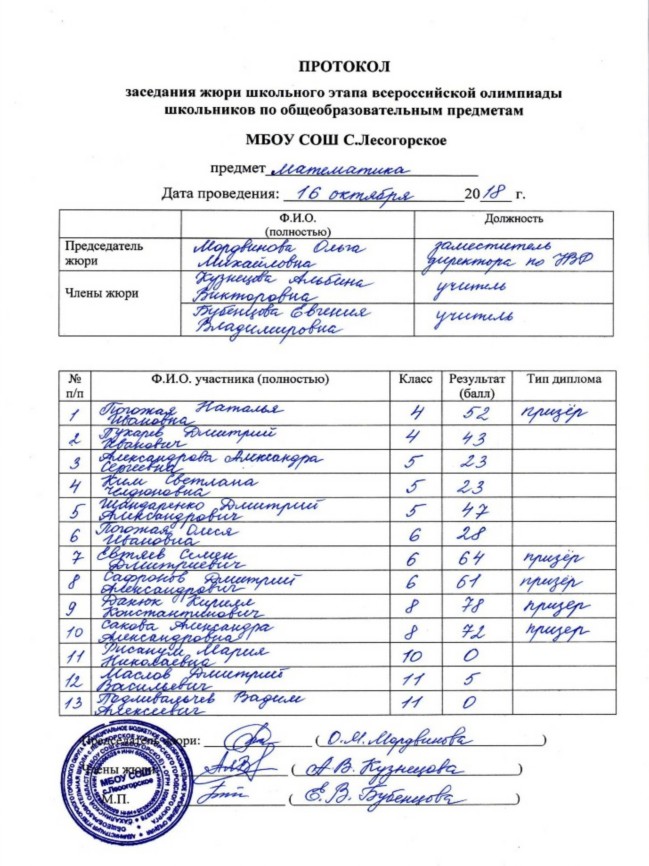 ПРОТОКОЛ
заседания жюри школьного этапа всероссийской олимпиады
школьников по общеобразовательным предметам
МБОУ СОШ С.Лесогорское
предмет математика
Дата проведения: 16 октября 2018 г.
Ф.И.О. Должность
(полностью)
Председатель Мордвинова Ольга заместитель
жюри Михайловна директора по УВР
Кузнецова Альбина учитель
Члены жюри Викторовна
Бубенцова Евгения учитель
Владимировна
№ Ф.И.О. участника (полностью) Класс Результат Тип диплома
п/п (балл)
1 Погожая Наталья 4 52 призёр
Ивановна
2 Пухарев Дмитрий 4 43
Иванович
3 Александрова Александра 5 23
Сергеевна
4 Ким Светлана 5 23
5 Шандаренко Дмитрий 5 47
Александрович
6 Погожая Олеся 6 28
Ивановна
7 Евтяев Семен 6 64 призёр
Дмитриевич
8 Сафронов Дмитрий 6 61 призёр
Александрович
9 Данюк Кирилл 8 78 призёр
Константинович
10 Сакова Александра 8 72 призёр
Александровна
11 Мария 10 0
Николаевна
12 Маслов Дмитрий 11 5
Васильевич
13 Вадим 11 0
Алексеевич
Председатель жюри: ( О.М.Мордвинова )
Члены жюри: ( А.В.Кузнецова )
М.П. ( Е.В.Бубенцова )
МБОУ СОШ
с.Лесогорское